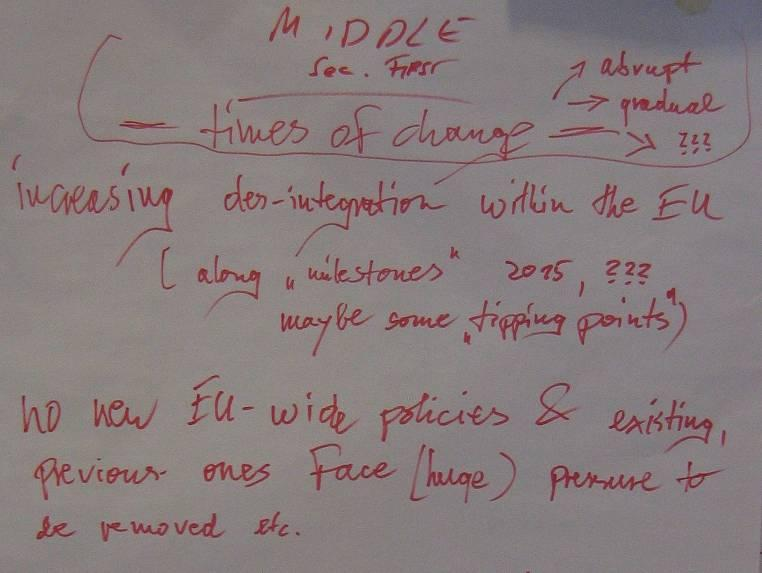 MIDDLE
Sec. First
— times of change — ↗ abrupt
→ gradual
↘ ???
increasing des-integration within the EU
( along „milestones" 2015, ???
maybe some „tipping points")
no new EU-wide policies & existing,
previous ones Face (huge) pressure to
be removed etc.